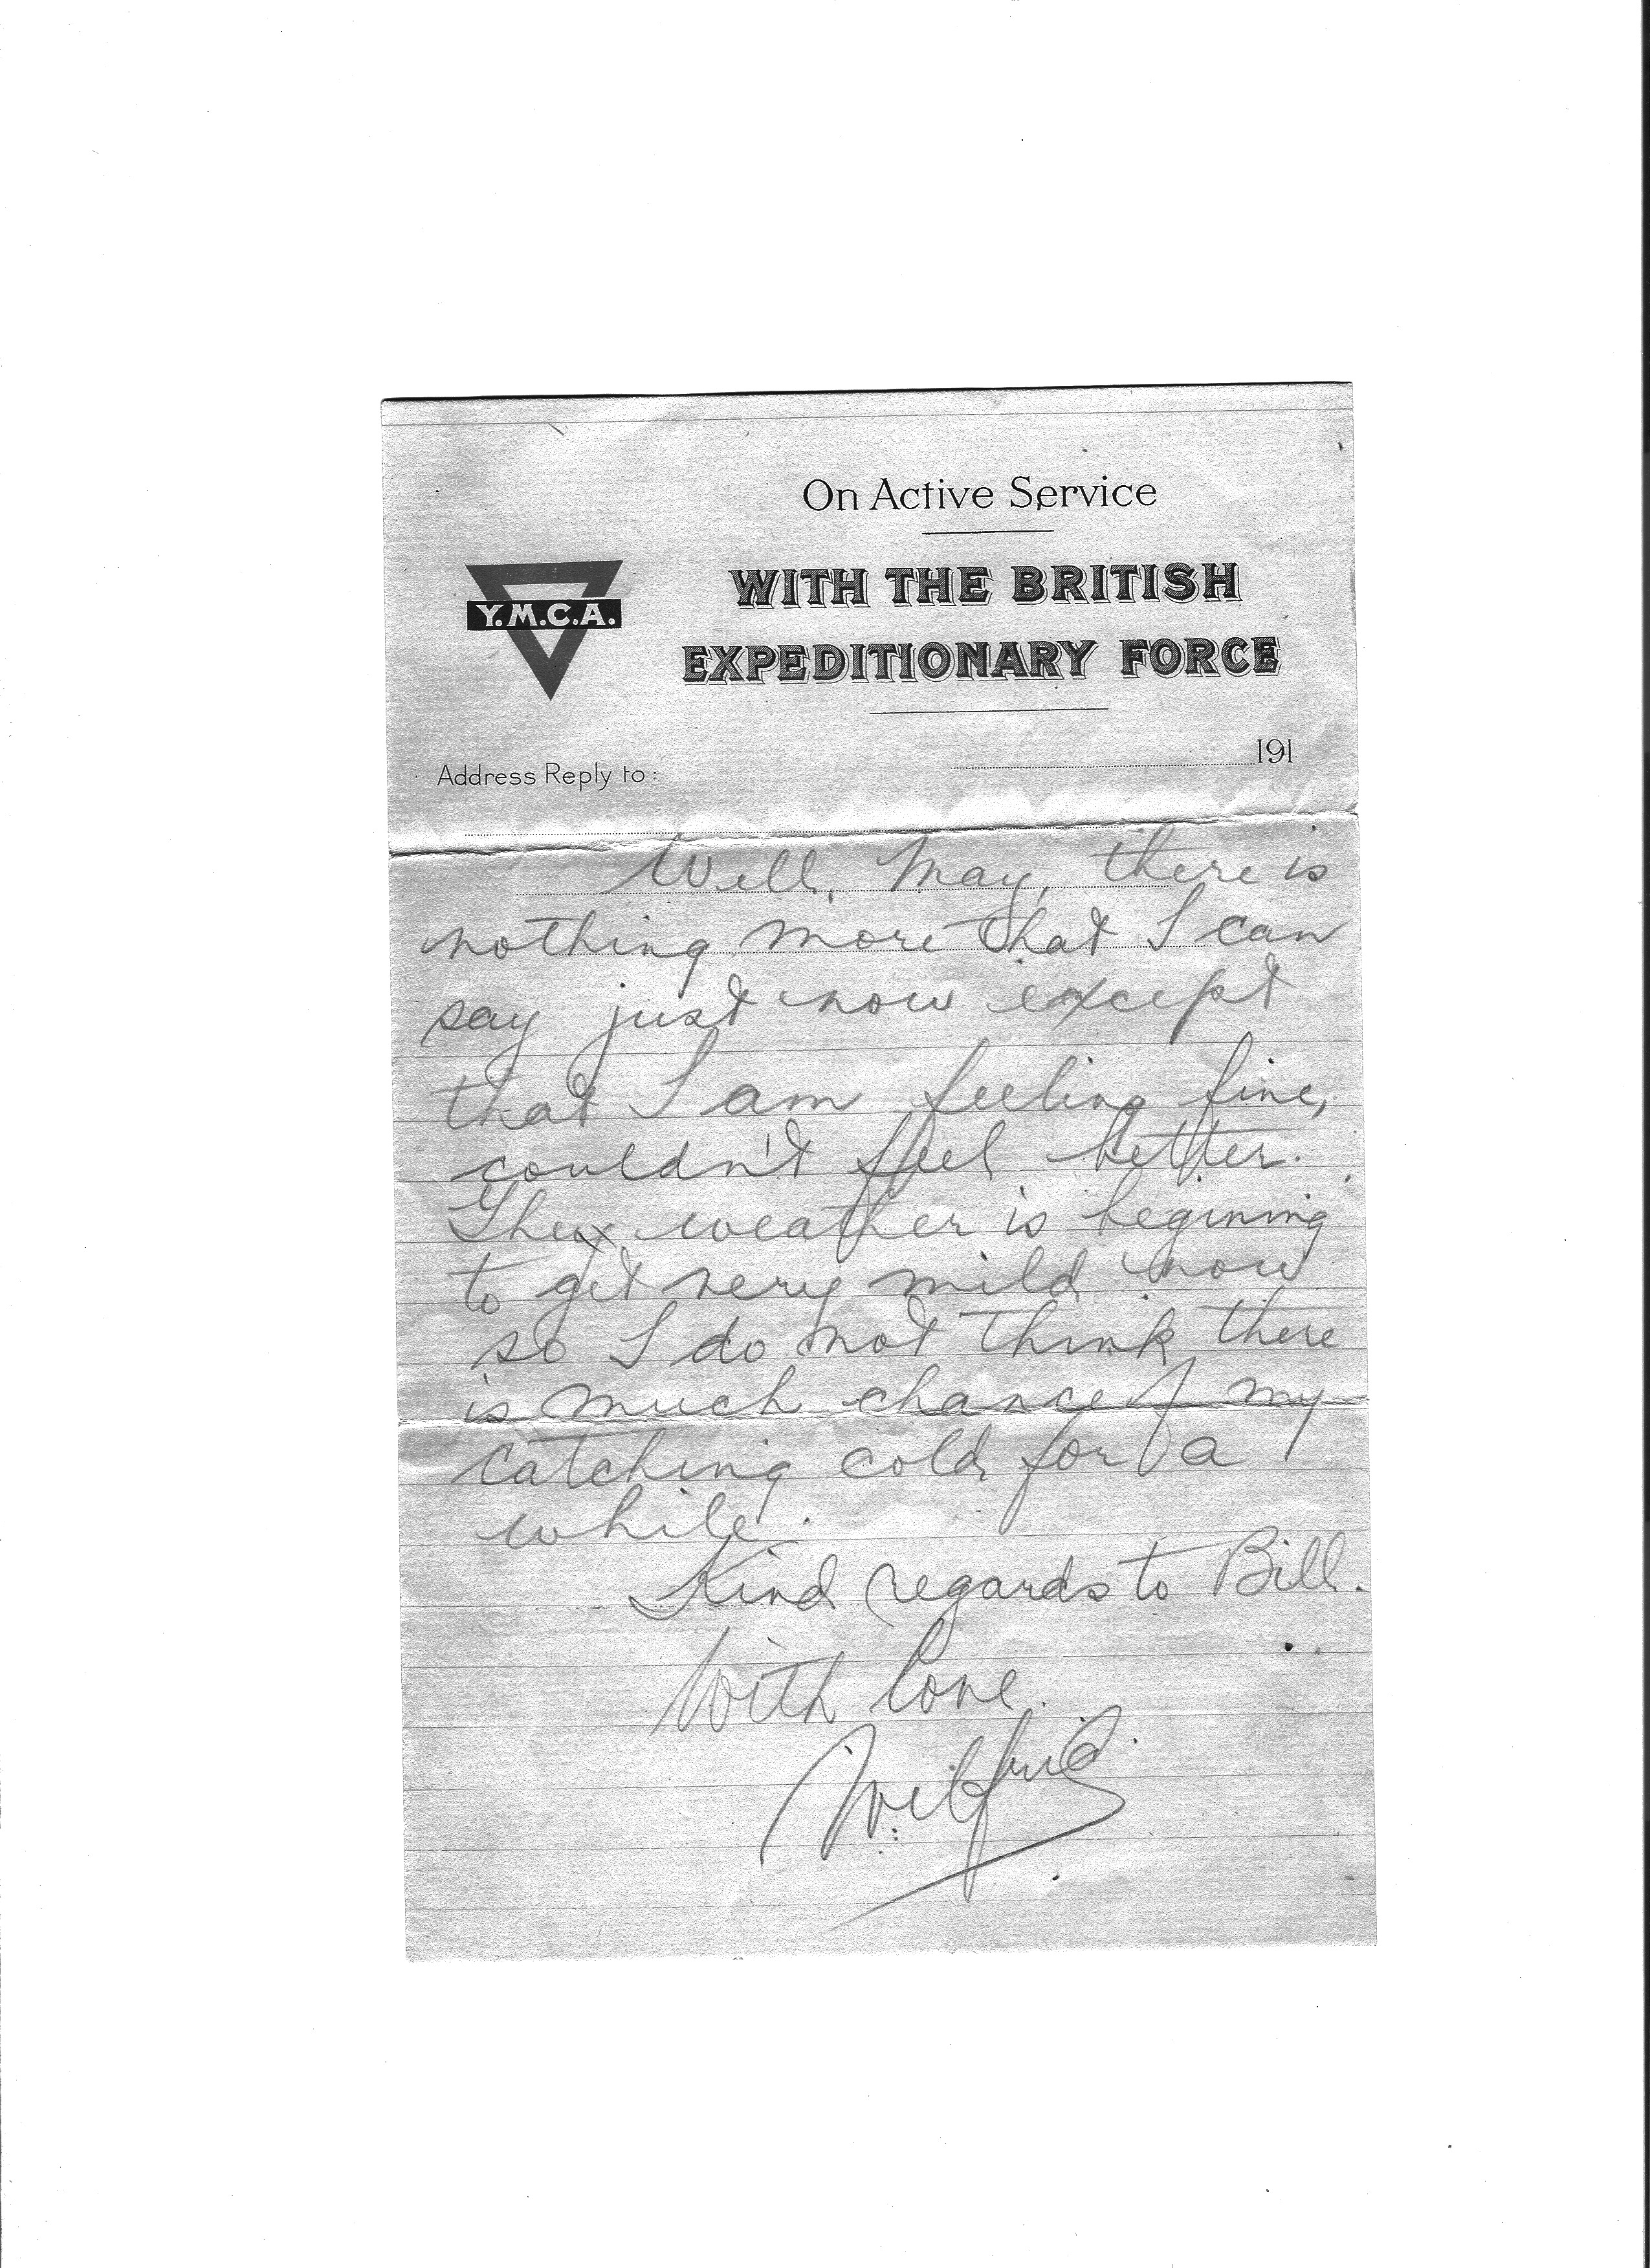 On Active Service
WITH THE BRITISH
Y.M.C.A.
EXPEDITIONARY FORCE
191
Address Reply to:
Well, May, there is
nothing more that I can
say just now except
that I am feeling fine,
couldn't feel better.
The weather is begining
to get very mild now
so I do not think there
is much chance of my
catching cold for a
while.
Kind regards to Bill.
With love.
Wilfrid.